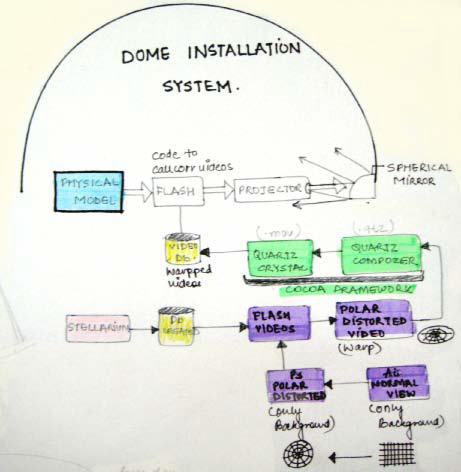 DOME INSTALLATION
SYSTEM.
code to
call corr videos
PHYSICAL
MODEL
FLASH
PROJECTOR
SPHERICAL
MIRROR
(.mov)
(.qtz)
VIDEO
DB
warpped
videos
QUARTZ
CRYSTAL
QUARTZ
COMPOZER
COCOA FRAMEWORK
STELLARIUM
DB
FLASH
VIDEOS
POLAR
DISTORTED
VIDEO
(warp)
Ps
POLAR
DISTORTED
(only
Background)
Ai
NORMAL
VIEW
(only
Background)